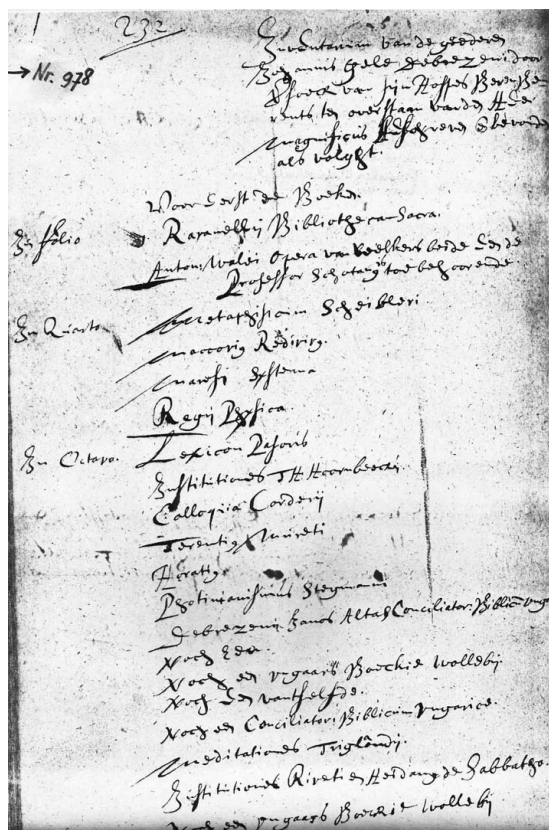 232
→ Nr. 978
Inventarium van de goederen
Johannis Gele Debrezeni door
van sijn Hospes
ten overstaen van den Heer
Magnificus
als volght.
Voor Eerst de Boeken.
In folio Ravanellij Bibliotheca Sacra.
Anton: Walei Opera van welkers beide
Professor Schotanus toe behoorende
In Quarto Metaphisicam Scheibleri
Maccovius Redivivus.
Maresi Systema
Regij Physica
In Octavo. Lexicon Pasoris
Institutiones TH Hoornbeecki.
Colloquia Corderij
Terentius Mureti
Horatius
Photinianismus Stegmani
Debrezenij Janos Conciliator: Biblicum
Noch een.
Noch een vngaars Boeckie Wollebij
Noch een vant selfde.
Noch een Conciliatori Biblicum vngarice.
Meditationes Triglandij.
Institutiones Riveti en Heidang de Sabbatho.
Noch een vngaars Boeckie Wollebij